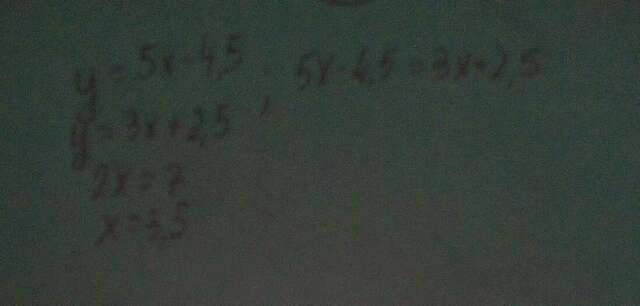 y=5x-4,5; 5x-4,5=3x+2,5
y=3x+2,5
2x=7
x=3,5